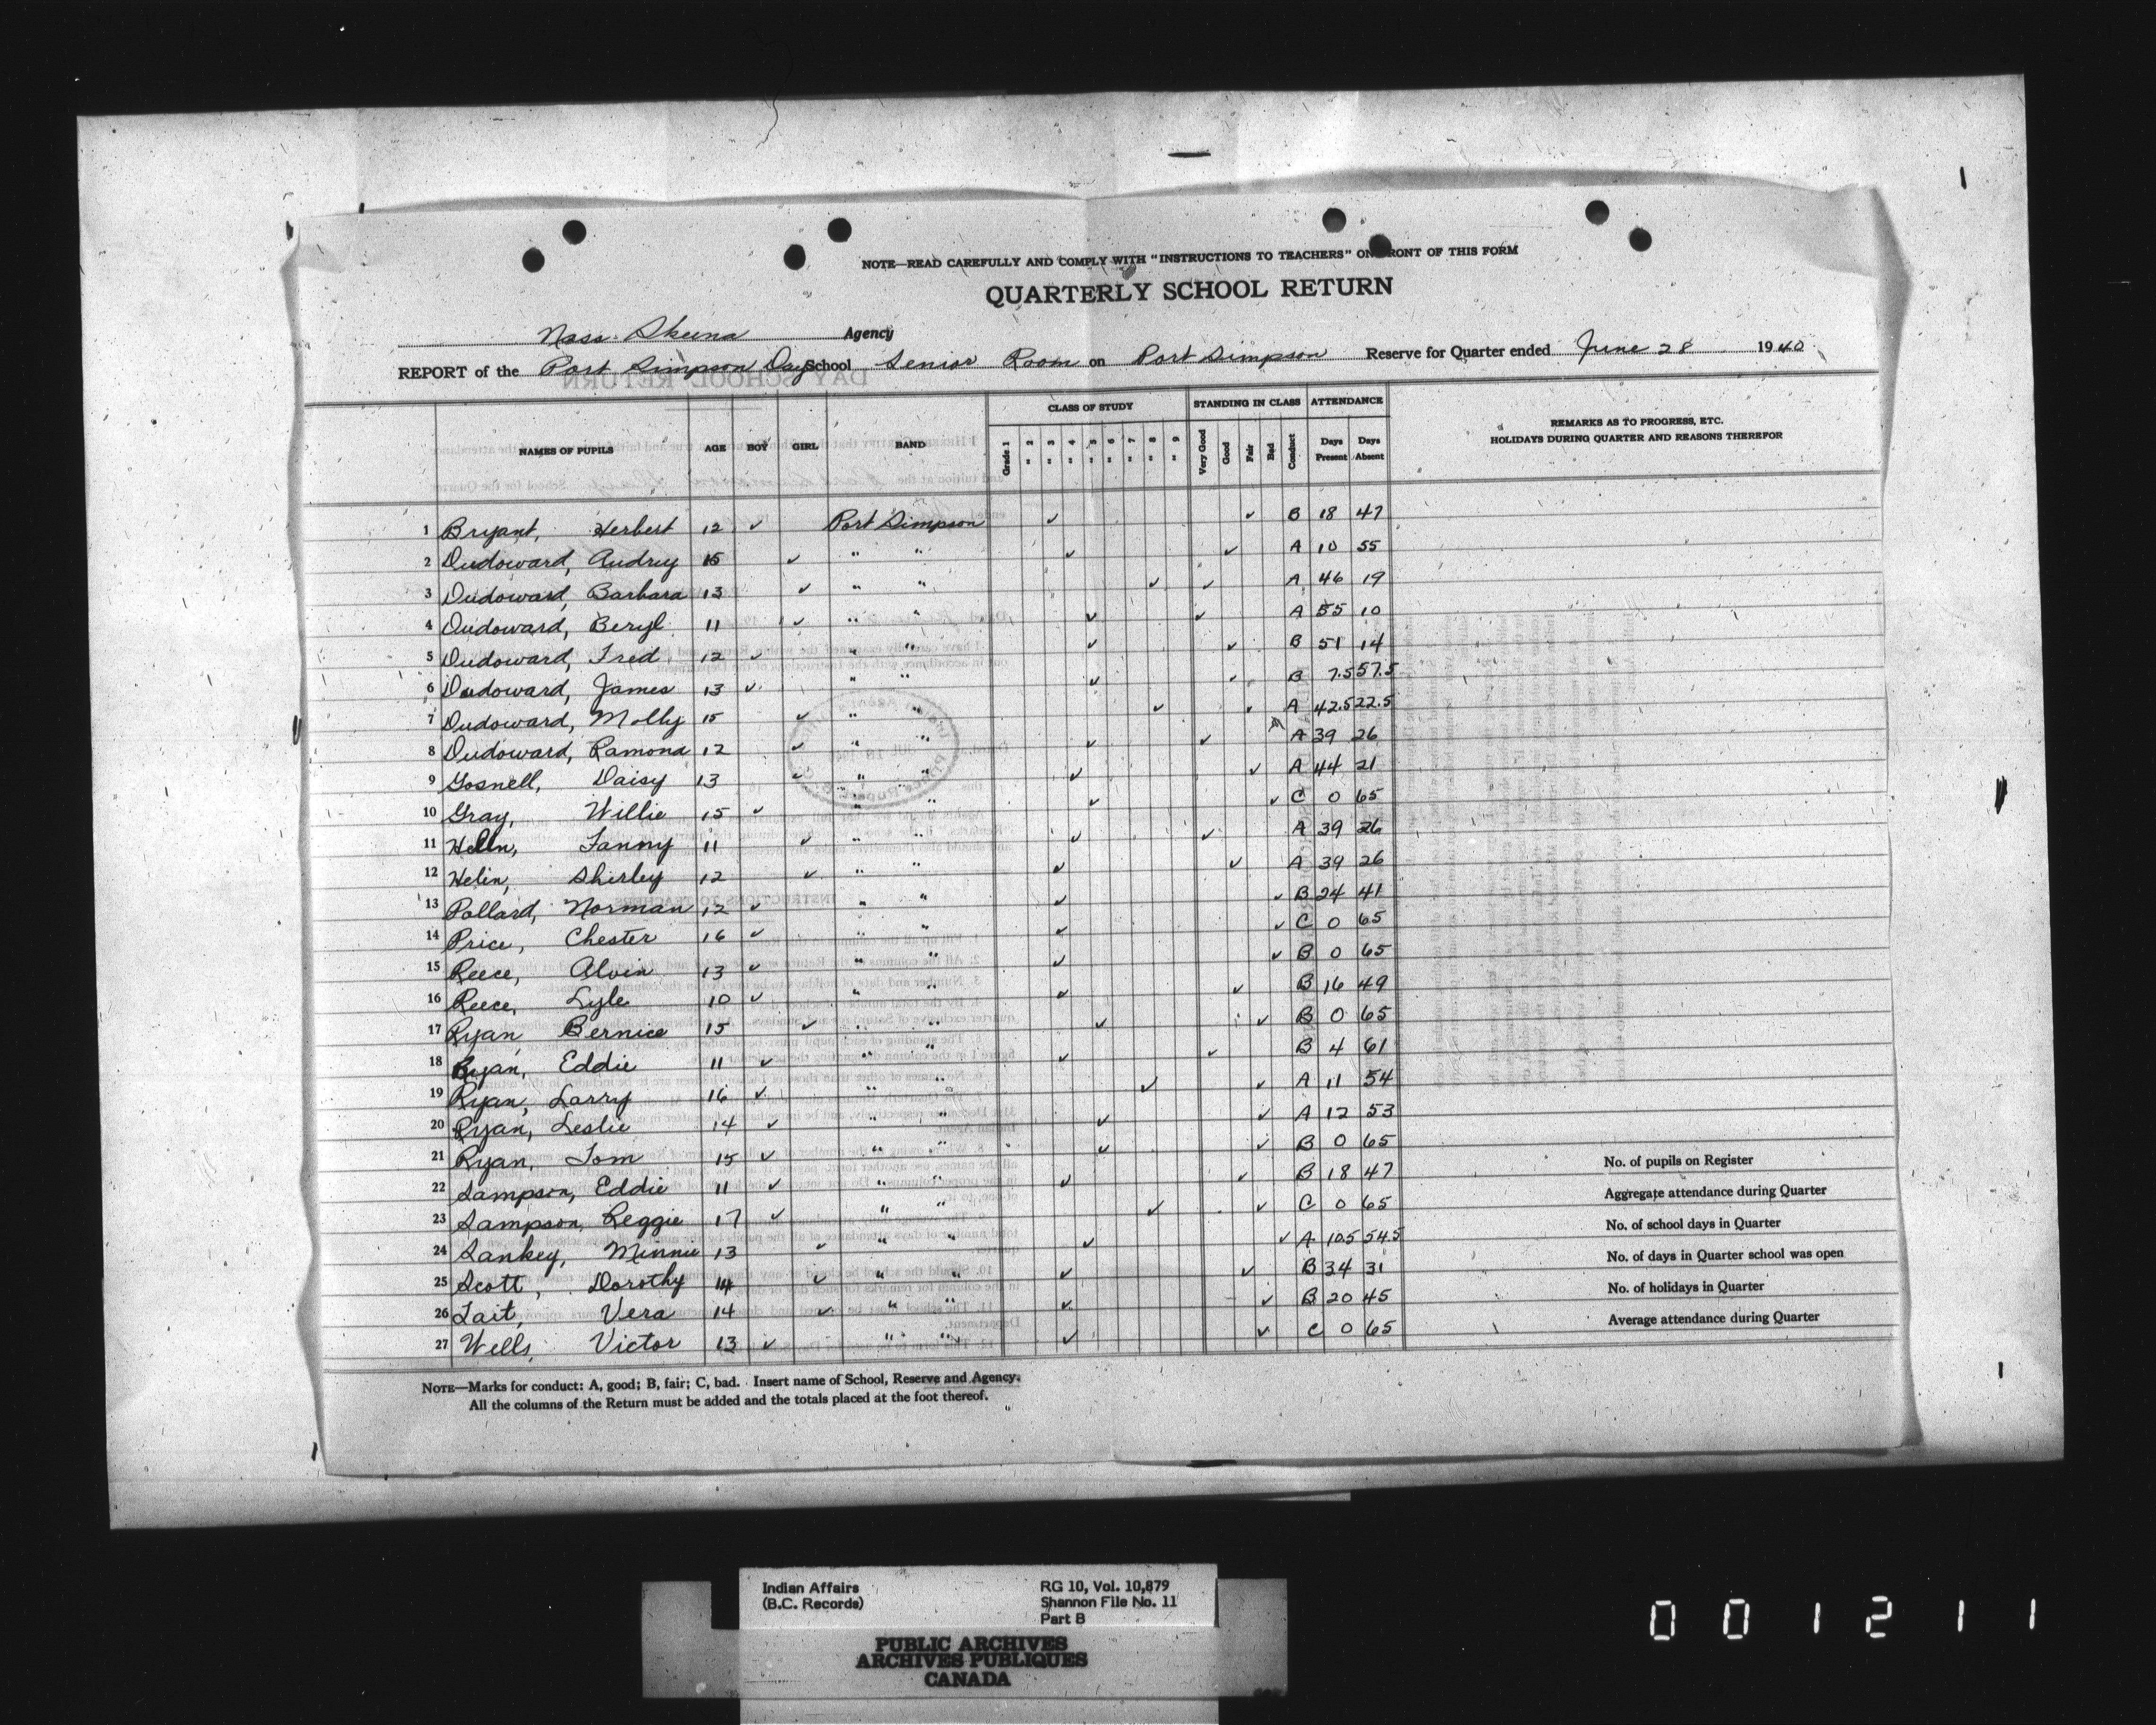 NOTE—READ CAREFULLY AND COMPLY WITH "INSTRUCTIONS TO TEACHERS" ON FRONT OF THIS FORM
QUARTERLY SCHOOL RETURN
Nass Skeena Agency
REPORT of the Port Simpson Day School Senior Room on Port Simpson Reserve for Quarter ended June 28 1940
CLASS OF STUDY STANDING IN CLASS ATTENDANCE
REMARKS AS TO PROGRESS, ETC.
HOLIDAYS DURING QUARTER AND REASONS THEREFOR
NAMES OF PUPILS AGE BOY GIRL BAND Grade 1 " 2 " 3 " 4 " 5 " 6 " 7 " 8 " 9 Very Good Good Fair Bad Conduct Days Present Days Absent
1 Bryant, Herbert 12 ✓ Port Simpson ✓ ✓ B 18 47
2 Dudoward, Audrey 15 ✓ " " ✓ ✓ A 10 55
3 Dudoward, Barbara 13 ✓ " " ✓ ✓ A 46 19
4 Dudoward, Beryl 11 ✓ " " ✓ ✓ A 55 10
5 Dudoward, Fred 12 ✓ " " ✓ ✓ B 51 14
6 Dudoward, James 13 ✓ " " ✓ ✓ B 7.5 57.5
7 Dudoward, Molly 15 ✓ " " ✓ ✓ A 42.5 22.5
8 Dudoward, Ramona 12 ✓ " " ✓ ✓ A 39 26
9 Gosnell, Daisy 13 ✓ " " ✓ ✓ A 44 21
10 Gray, Willie 15 ✓ " " ✓ ✓ C 0 65
11 Helin, Fanny 11 ✓ " " ✓ ✓ A 39 26
12 Helin, Shirley 12 ✓ " " ✓ ✓ A 39 26
13 Pollard, Norman 12 ✓ " " ✓ ✓ B 24 41
14 Price, Chester 16 ✓ " " ✓ ✓ C 0 65
15 Reece, Alvin 13 ✓ " " ✓ ✓ B 0 65
16 Reece, Lyle 10 ✓ " " ✓ ✓ B 16 49
17 Ryan Bernice 15 ✓ " " ✓ ✓ B 0 65
18 Ryan, Eddie 11 ✓ " " ✓ ✓ B 4 61
19 Ryan, Larry 16 ✓ " " ✓ ✓ A 11 54
20 Ryan, Leslie 14 ✓ " " ✓ ✓ A 12 53
21 Ryan, Tom 15 ✓ " " ✓ ✓ B 0 65
22 Sampson, Eddie 11 ✓ " " ✓ ✓ B 18 47
23 Sampson, Reggie 17 ✓ " " ✓ ✓ C 0 65
24 Sankey, Minnie 13 ✓ " " ✓ ✓ A 10.5 54.5
25 Scott, Dorothy 14 ✓ " " ✓ ✓ B 34 31
26 Tait, Vera 14 ✓ " " ✓ ✓ B 20 45
27 Wells, Victor 13 ✓ " " ✓ ✓ C 0 65
No. of pupils on Register
Aggregate attendance during Quarter
No. of school days in Quarter
No. of days in Quarter school was open
No. of holidays in Quarter
Average attendance during Quarter
NOTE—Marks for conduct: A, good; B, fair; C, bad. Insert name of School, Reserve and Agency.
All the columns of the Return must be added and the totals placed at the foot thereof.
Indian Affairs RG 10, Vol. 10,879
(B.C. Records) Shannon File No. 11
Part B
PUBLIC ARCHIVES
ARCHIVES PUBLIQUES
CANADA
001211